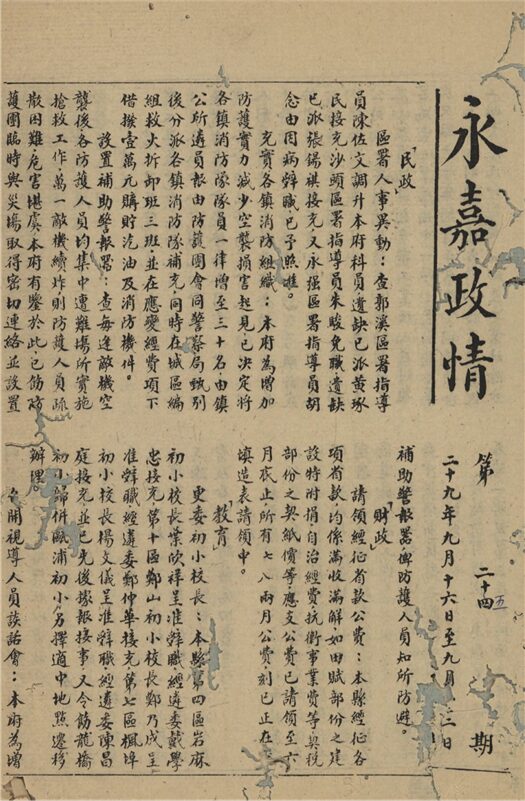 永嘉政情
第二十四五期
二十九年九月十六日至九月三日
「民政」
區署人事異動：查郭溪區署指導
員陳佐文調升本府科員遺缺已派黄琢
民接充沙頭區署指導員朱駿免職遺缺
已派張錫祺接充又永强區署指導員胡
念由因病辭職已予照准。
充實各鎮消防組織：本府為增加
防護實力減少空襲損害起見已决定將
各鎮消防隊隊員一律增至三十名由鎮
公所遴員報由防護團會同警察局甄别
後分派各鎮消防隊補充同時在城區編
組救火拆卸班三班並在應變經費項下
借撥壹萬元購貯汽油及消防機件。
設置補助警報器：查每逢敵機空
襲後各防護人員均集中遭難塲所實施
搶救工作萬一敵機續炸則防護人員疏
散困難危害堪虞本府有鑒於此已飭防
護團臨時與災塲取得密切連絡並設置
補助警報器俾防護人員知所防避。
「財政」
請領經征省款公費：本縣經征各
項省款均係滿收滿解如田賦部份之建
設特附捐自治經費抗衛事業費等契税
部份之契紙價等應支公費已請領至六
月底止所有七八兩月公費刻已正在
填造表請領中。
「教育」
更委初小校長：本縣第四區岩麻
初小校長葉欣祥呈准辭職經遴委戴學
忠接充第十區鄭山初小校長鄭乃成呈
准辭職經遴委鄭仲華接充第七區楓埠
初小校長楊文儀呈准辭職經遴委陳昌
庭接充並已先後據報接事又令飭龍橋
初小歸併甌浦初小另擇適中地點遷移
辦理
召開視導人員談話會：本府為增